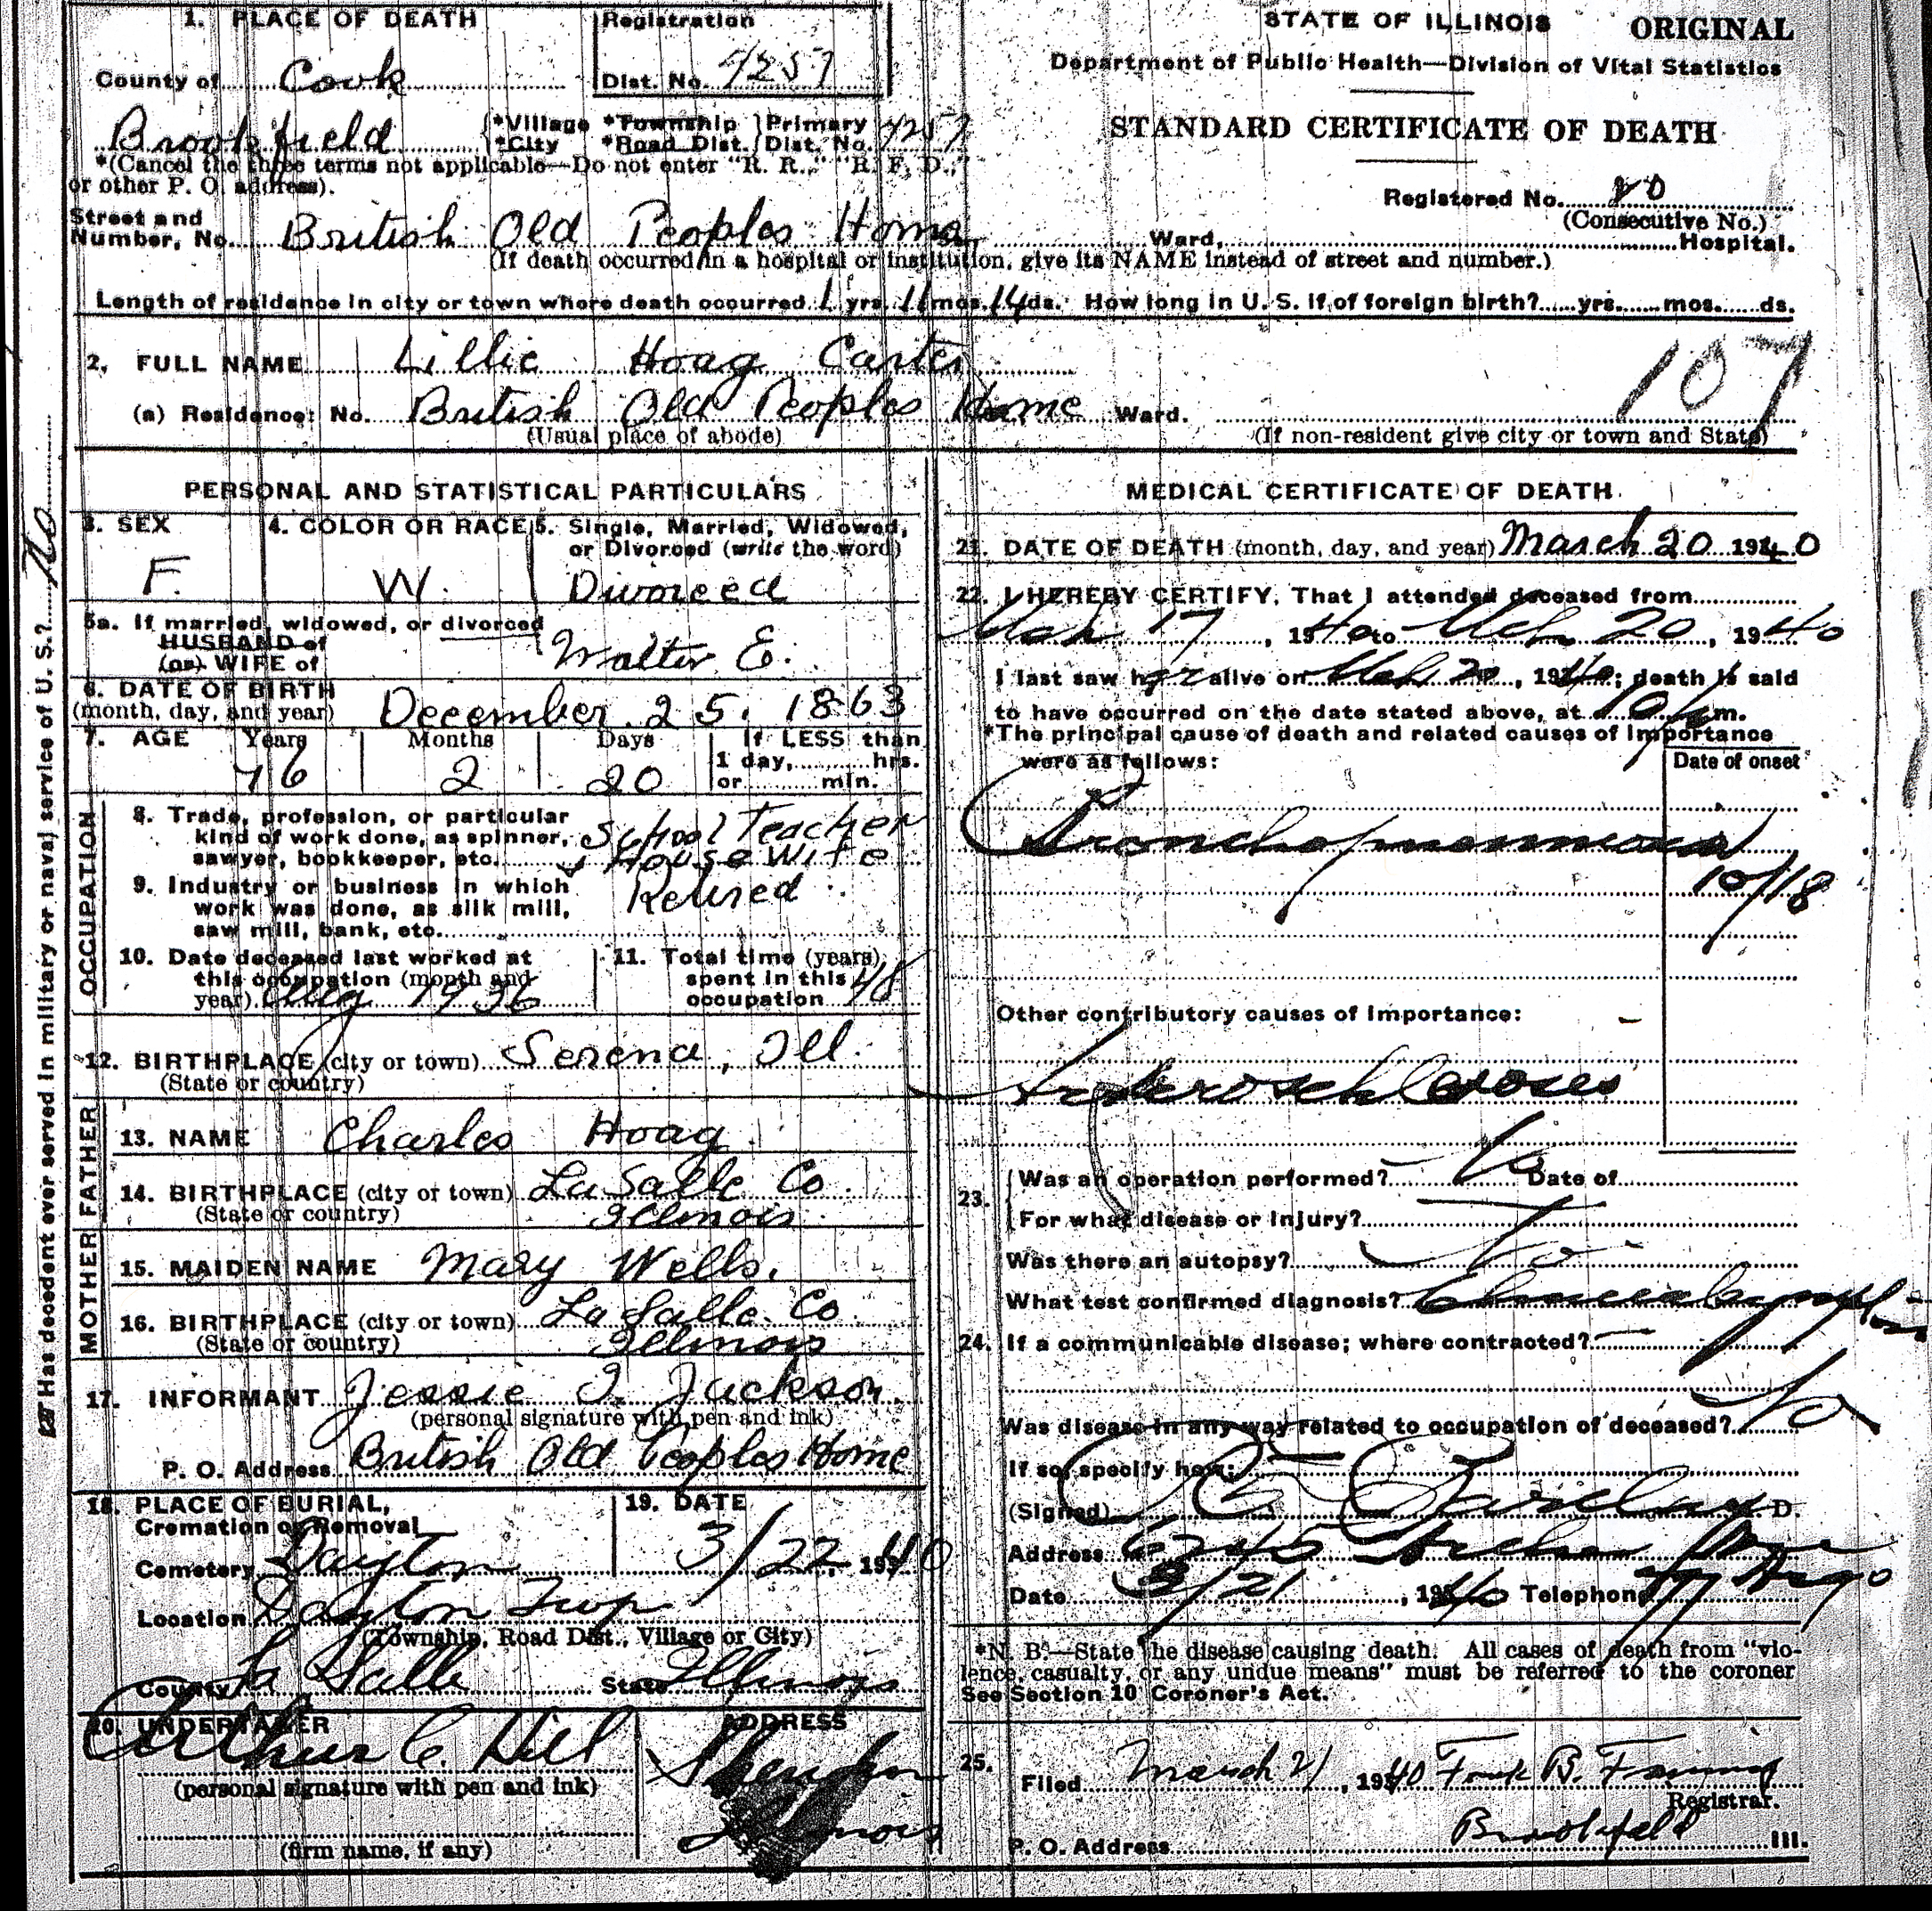 1. PLACE OF DEATH
Registration
STATE OF ILLINOIS ORIGINAL
County of Cook
Dist. No. 4257
Department of Public Health—Division of Vital Statistics
Brookfield {*Village *Township }Primary 4257
*City *Road Dist. }Dist. No.
STANDARD CERTIFICATE OF DEATH
*(Cancel the three terms not applicable—Do not enter "R. R.," "R. F. D.,"
or other P. O. address).
Registered No.
(Consecutive No.)
Street and
Number, No. British Old Peoples Home Ward, Hospital.
(If death occurred in a hospital or institution, give its NAME instead of street and number.)
Length of residence in city or town where death occurred 1 yrs. 11 mos. 14 ds. How long in U. S. if of foreign birth? yrs. mos. ds.
2. FULL NAME Lillie Hoag Carter
107
(a) Residence: No. British Old Peoples Home Ward.
(Usual place of abode) (If non-resident give city or town and State)
PERSONAL AND STATISTICAL PARTICULARS
3. SEX 4. COLOR OR RACE 5. Single, Married, Widowed,
or Divorced (write the word)
F. W. Divorced
5a. If married, widowed, or divorced
HUSBAND of
(or) WIFE of Walter E.
6. DATE OF BIRTH
(month, day, and year) December 25, 1863
7. AGE Years Months Days If LESS than
1 day, hrs.
76 2 20 or min.
OCCUPATION
8. Trade, profession, or particular
kind of work done, as spinner, School Teacher
sawyer, bookkeeper, etc. Housewife
9. Industry or business in which
work was done, as silk mill, Retired
saw mill, bank, etc.
10. Date deceased last worked at
this occupation (month and
year) Aug 1936
11. Total time (years)
spent in this
occupation 48
12. BIRTHPLACE (city or town) Serena, Ill.
(State or country)
FATHER
13. NAME Charles Hoag
14. BIRTHPLACE (city or town) La Salle Co.
(State or country) Illinois
MOTHER
15. MAIDEN NAME Mary Wells.
16. BIRTHPLACE (city or town) La Salle Co
(State or country) Illinois
17. INFORMANT Jessie I. Jackson.
(personal signature with pen and ink)
P. O. Address British Old Peoples Home
18. PLACE OF BURIAL,
Cremation or Removal
19. DATE
Cemetery Dayton 3/22, 1940
Location Dayton Twp
(Township, Road Dist., Village or City)
County La Salle State Illinois
20. UNDERTAKER ADDRESS
Arthur C. Hill
(personal signature with pen and ink)
Illinois
(firm name, if any)
Has decedent ever served in military or naval service of U. S.? No
MEDICAL CERTIFICATE OF DEATH
21. DATE OF DEATH (month, day, and year) March 20 1940
22. I HEREBY CERTIFY, That I attended deceased from
Mch 17, 1940 to Mch 20, 1940
I last saw her alive on Mch 20, 1940; death is said
to have occurred on the date stated above, at 10 m.
*The principal cause of death and related causes of importance
were as follows: Date of onset
Bronchopneumonia
Other contributory causes of importance:
23. Was an operation performed? No Date of
For what disease or injury?
Was there an autopsy? No
What test confirmed diagnosis?
24. If a communicable disease; where contracted?
Was disease in any way related to occupation of deceased? No
If so, specify how:
(Signed) M. D.
Address 6245 Archer Ave
Date 3/21, 1940 Telephone Argo
*N. B.—State the disease causing death. All cases of death from "vio-
lence, casualty, or any undue means" must be referred to the coroner
See Section 10 Coroner's Act.
25. Filed March 21, 1940 Frank B.
Registrar.
P. O. Address Brookfield Ill.